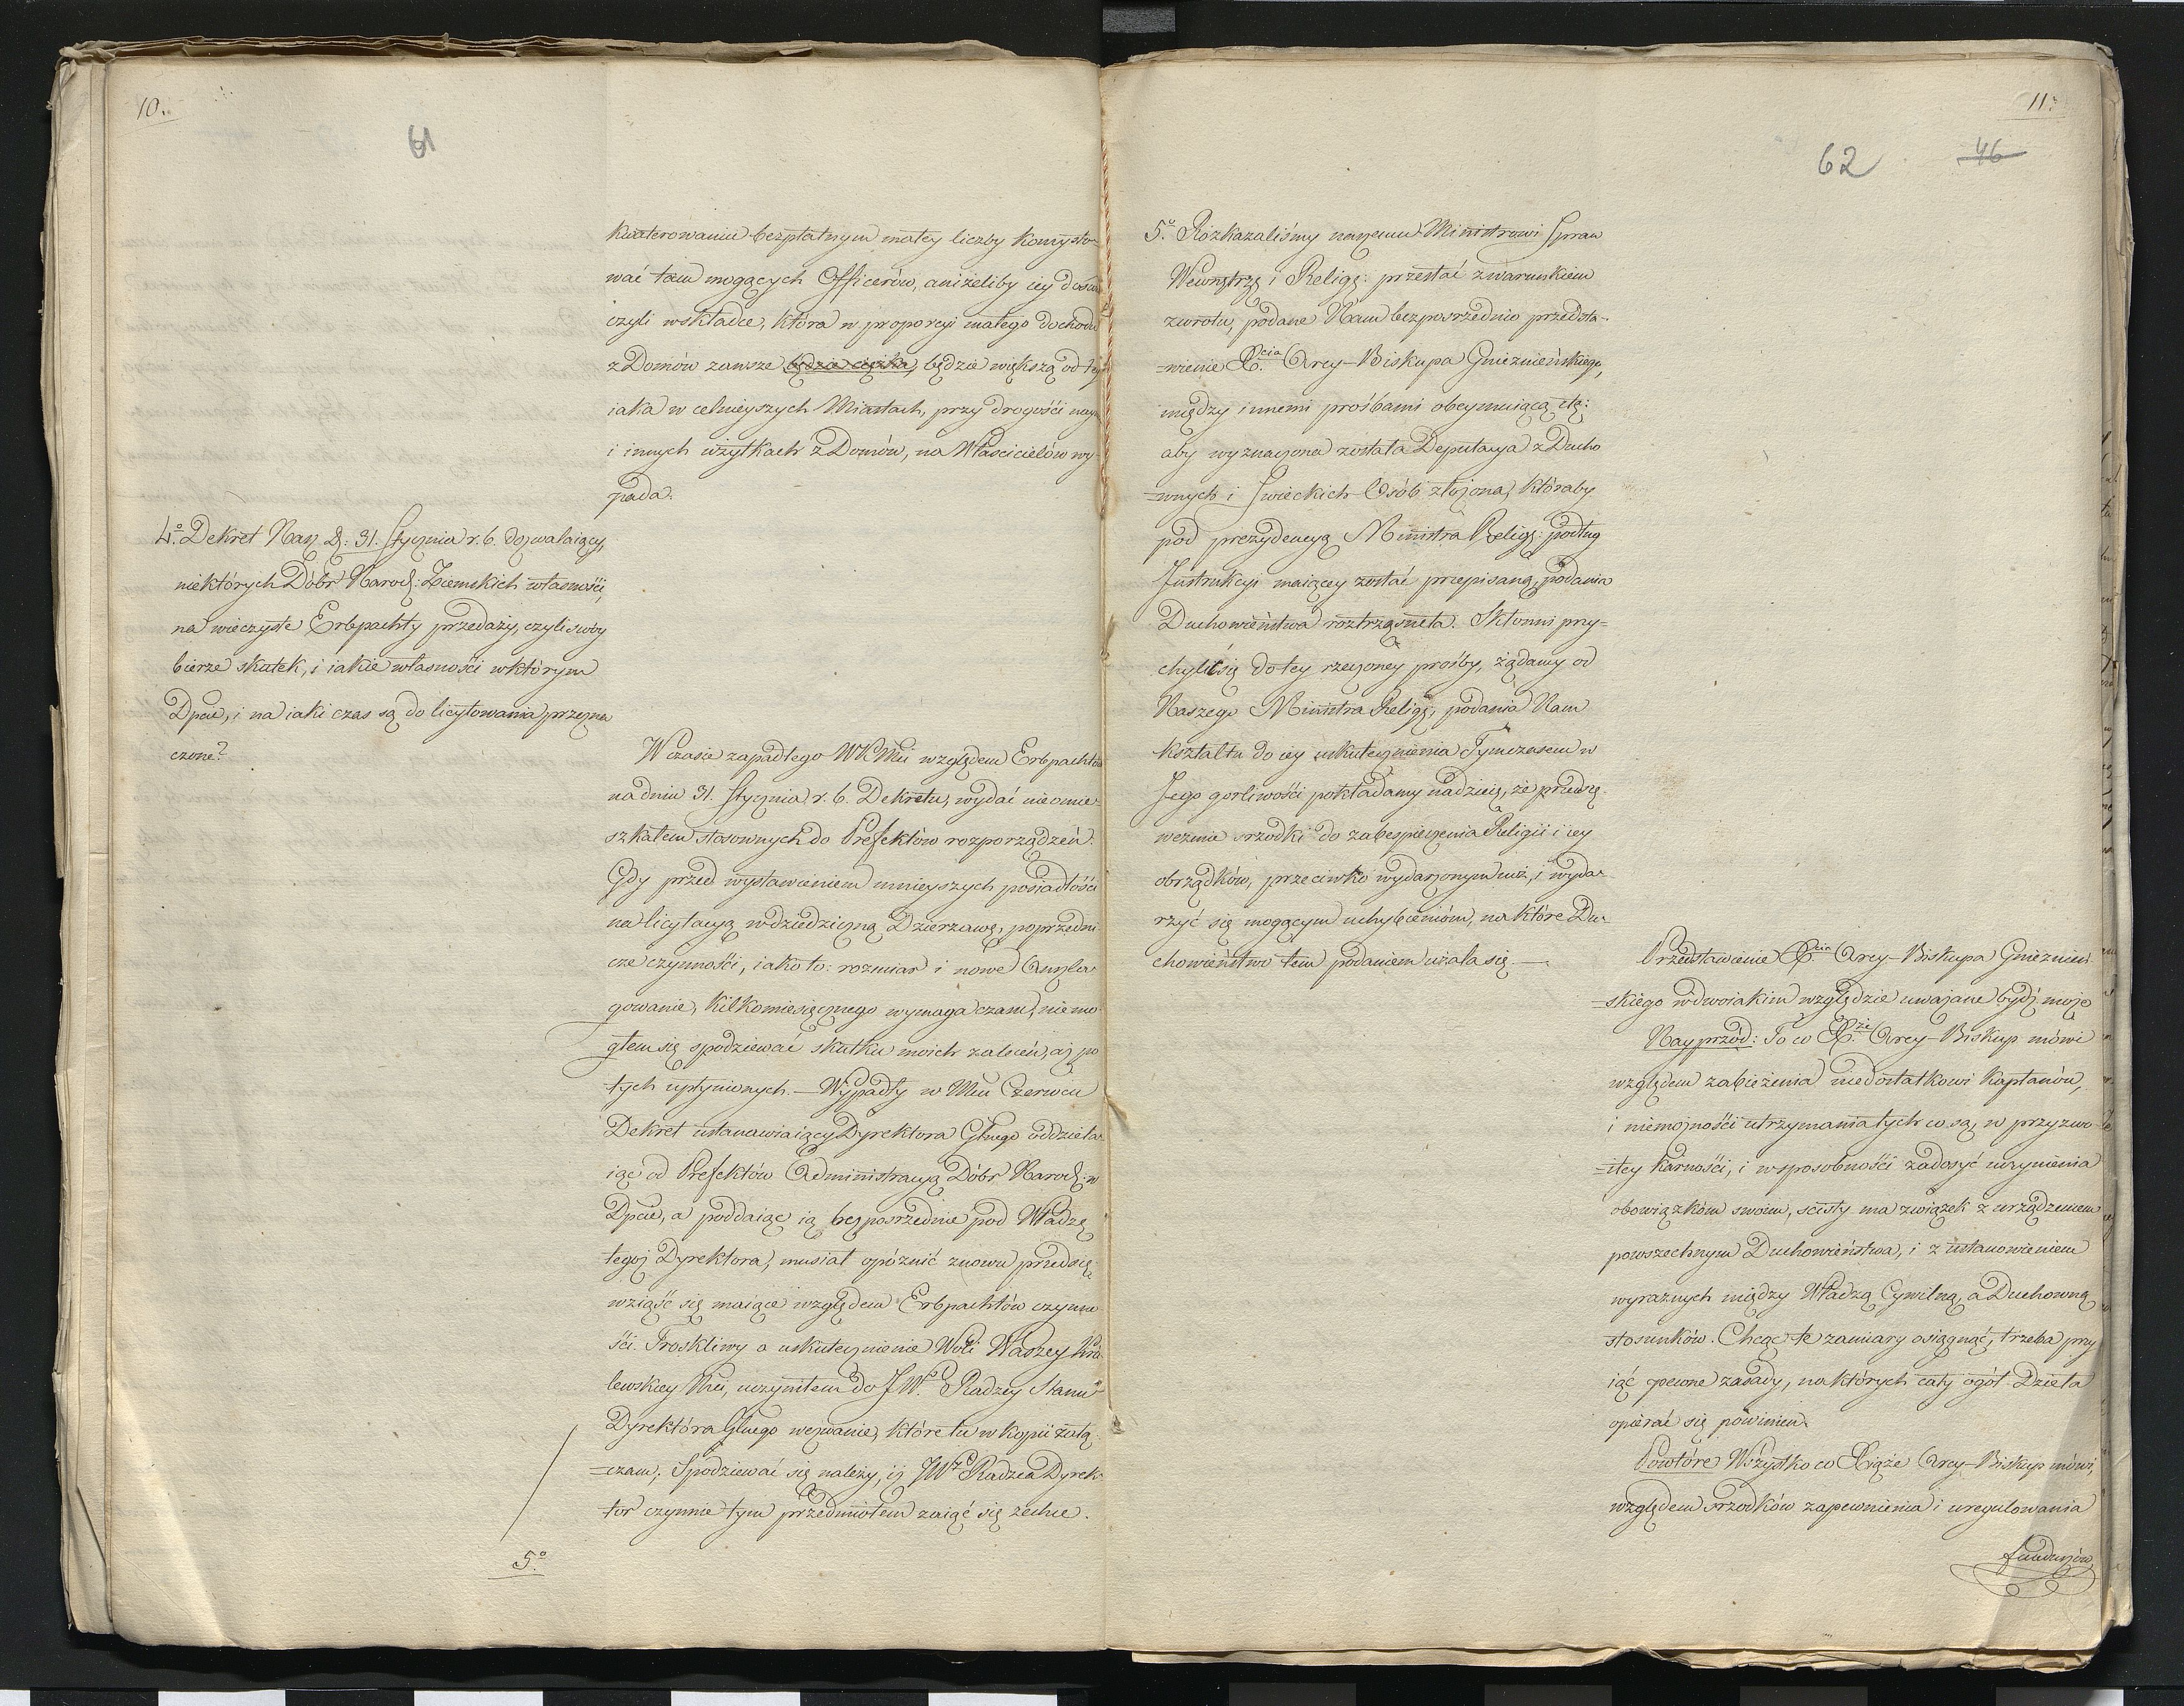 10.
61
kwaterowaniu bezpłatnym małey liczby konsysto-
wać tam mogących Officerów, aniżeliby iey
czyli wskładce, która w proporcyi małego dochodu
z Domów zawsze będzie ciężka, będzie większą od tey
iaka w celnieyszych Miastach, przy drogości
i innych użytkach z Domów, na Włascicielów wy-
pada.
4.° Dekret Nasz d: 31. Stycznia r. b. dozwalaiący,
niektórych Dóbr Narod: Ziemskich własności,
na wieczyste Erbpachty przedaży, czyli swóy
bierze skutek, i iakie własności wktórym
Dpcie, i na iaki czas są do licytowania przezna
czone?
W czasie zapadłego WKMci względem Erbpachtów
na dniu 31. Stycznia r. b. Dekretu, wydać nieomie-
szkałem stosownych do Prefektów rozporządzeń.
Gdy przed wystawieniem mnieyszych posiadłości
na licytacyą wdziedziczną Dzierzawę, poprzedni
cze czynności, iako to: rozmiar i nowe Anszla-
gowanie, kilkomiesięcznego wymaga czasu, niemo-
głem się spodziewać skutku moich zaleceń, aż po
tych upłynionych. — Wypadły w Mcu Czerwcu
Dekret ustanawiaiący Dyrektora Głnego oddziela-
iąc od Prefektów Administracyą Dóbr Narod: w
Dpcie, a poddaiąc ią bezposrzednie pod Władzę
tegoż Dyrektora, musiał opóznić znowu przedsię-
wziąść się maiące względem Erbpachtów czynno
ści. Troskliwy o uskutecznienie Woli Waszey Kró-
lewskiey Mci, uczyniłem do JW. Radzcy Stanu
Dyrektóra Głnego wezwanie, które tu w kopii załą-
=czam, Spodziewać się należy, iż JW. Radzca Dyrek-
tor czynnie tym przedmiotem zaiąć się zechce.
5.°
11.
62
46
5.° Rozkazaliśmy naszemu Ministrowi Spraw
Wewnętrz i Religy: przesłać z warunkiem
zwrotu, podane Nam bezposrzednio przedsta-
=wienie X.cia Arcy-Biskupa Gnieznieńskiego,
między innemi prośbami obeymuiącą tę:
aby wyznaczona została Deputacya z Ducho
=wnych i Swieckich Osób złożona, któraby
pod prezydencyą Ministra Religy: podług
Instrukcyi maiącey zostać przepisaną, podania
Duchowieństwa roztrząsneła. Skłonni przy=
chylić się do tey rzeczoney prośby, żądamy od
Naszego Ministra Religy, podania Nam
kształtu do iey uskutecznienia Tymczasem w
Jego gorliwości pokładamy nadzieię, że przedsię-
wezmie srzodki do zabezpieczenia Religii i iey
obrządków, przeciwko wydarzonym iuż, i wyda-
rzyć się mogącym uchybieniom, na które Du-
chowieństwo tem podaniem użala się. —
Przedstawienie X.cia Arcy-Biskupa Gnieznień-
=skiego wdwoiakim względzie uważane bydź może
Nayprzód: To co X.że Arcy-Biskup mówi
względem zabieżenia niedostatkowi Kapłanów,
i niemożności utrzymania tych co są, w przyzwo-
=itey karności, i wsposobności zadosyć uczynienia
obowiązkom swoim, scisły ma związek z urządzeniem
powszechnym Duchowieństwa, i z ustanowieniem
wyraznych między Władzą Cywilną, a Duchowną
stosunków. Chcąc te zamiary osiągnąć, trzeba przy
iąć pewne zasady, na których cały ogół Dzieła
opierać się powinien.
Powtóre Wszystko co Xiąże Arcy-Biskup mówi,
względem srzodków zapewnienia i uregulowania
funduszów